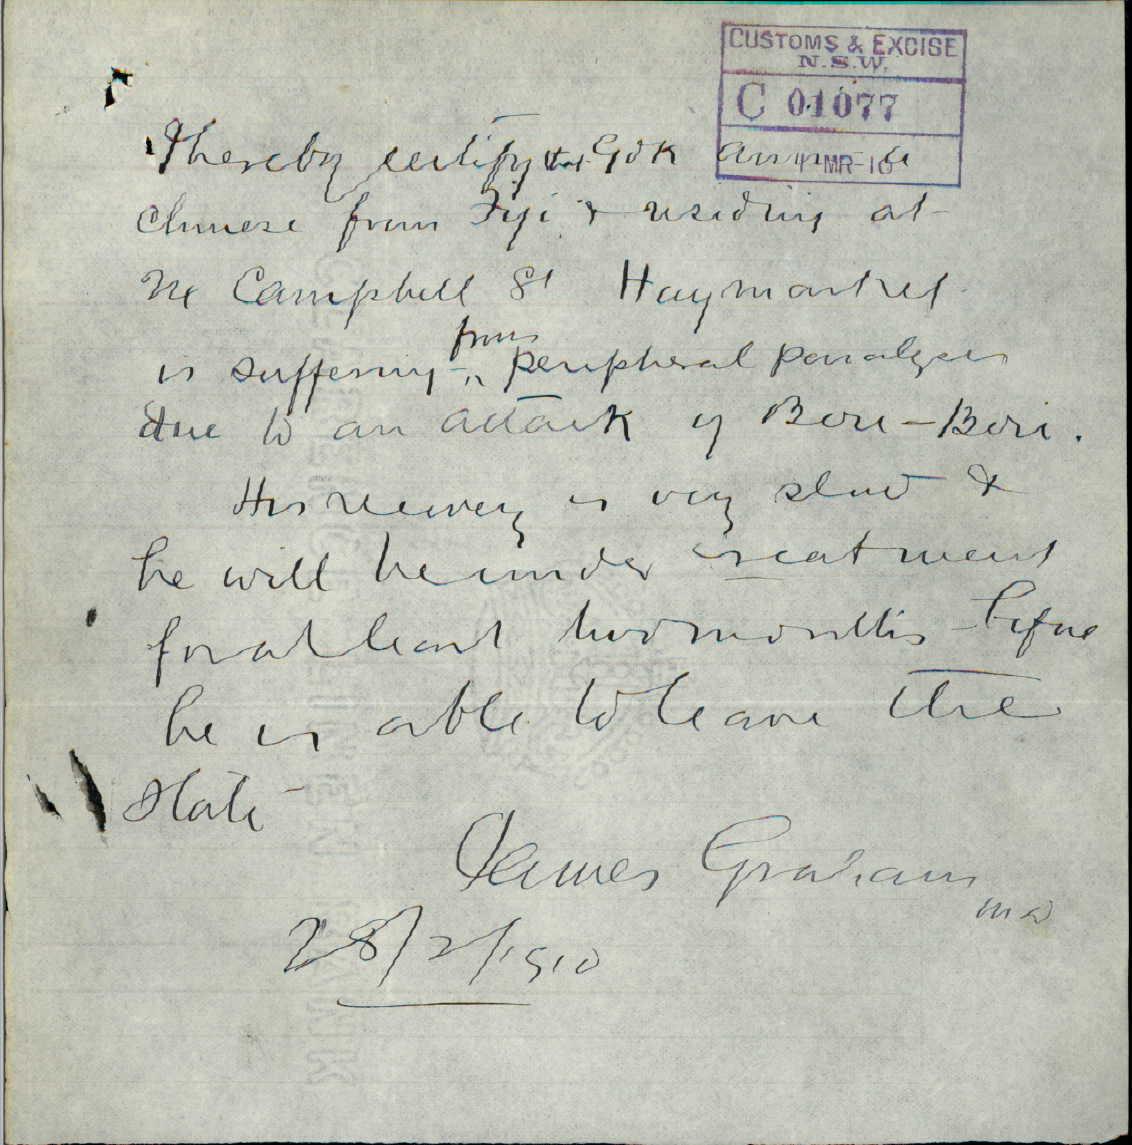 CUSTOMS & EXCISE
N.S.W.
C 01077
1 MR-10
I hereby certify that Gok a
Chinese from Fiji & residing at
Campbell St Haymarket
is suffering from peripheral paralysis
due to an attack of Beri-Beri.
His recovery is very slow &
he will be under treatment
for at least two months before
he is able to leave the
State
James Graham
MD
28/2/1910